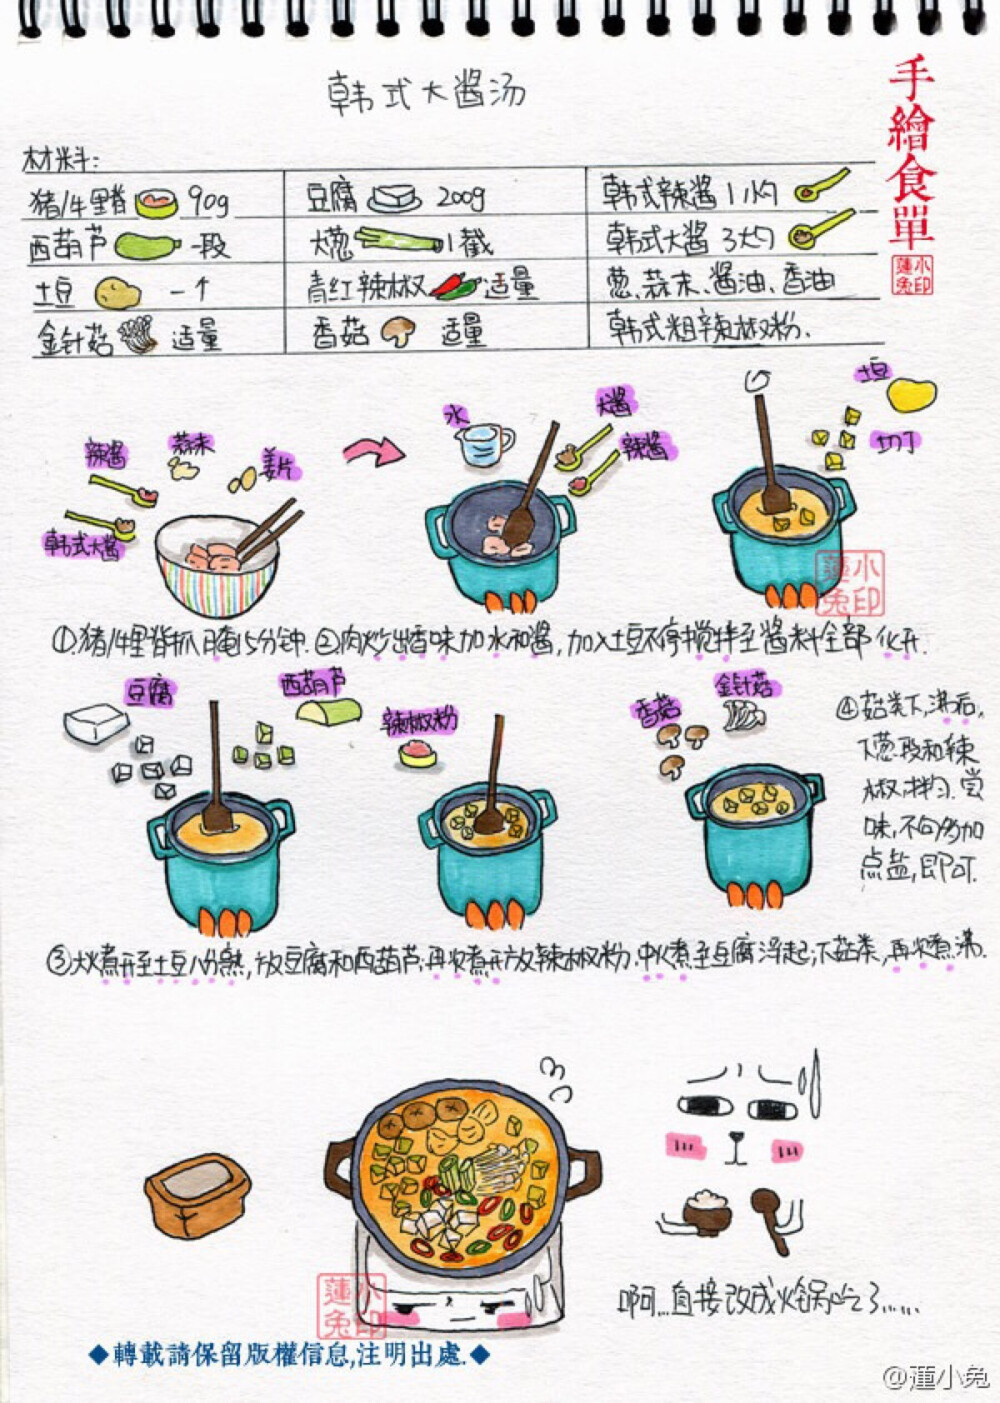 韩式大酱汤
手繪食單
蓮小兔印
材料:
猪/牛里脊 90g 豆腐 200g 韩式辣酱 1小勺
西葫芦 一段 大葱 1截 韩式大酱 3大勺
土豆 一个 青红辣椒 适量 葱、蒜末、酱油、香油
金针菇 适量 香菇 适量 韩式粗辣椒粉.
辣酱 蒜末 姜片 韩式大酱
水 大酱 辣酱
土豆 切丁
蓮小兔印
①.猪/牛里脊抓腌15分钟.②肉炒出香味加水和酱,加入土豆不停搅拌至酱料全部化开.
豆腐 西葫芦
辣椒粉
香菇 金针菇
④菇类下,沸后,
下葱段和辣
椒,拌匀.尝
味,不够加
点盐,即可.
③大火煮开至土豆八分熟,放豆腐和西葫芦.再次煮开放辣椒粉.中火煮至豆腐浮起;下菇类,再次煮沸.
啊...直接改成火锅吃了......
蓮小兔印
◆轉載請保留版權信息,注明出處.◆
@蓮小兔